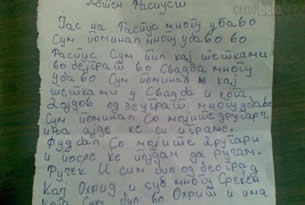 Летен Распуст
Час на Распус многу убаво
Сум поминал многу убаво во
Распус Сум бил кај тетками
во бејрат во Свадба многу
убаво Сум поминал кај
тетками у Свадба и кога
дудов од бејрат многу убаво
Сум поминал Со моjите другарч
иња ајде ке си играме.
Фудбал Со моjите Другари
и после ке појдам да ручам.
Ручек И сим бил од београд
Кај Охрид и сув многу Среќен
кога Сум бил во Охрит и има